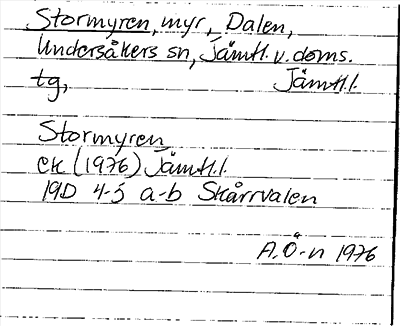 Stormyren, myr, Dalen,
Undersåkers sn, Jämtl. v. doms.
tg, Jämtl.l.
Stormyren
ek (1976) Jämtl.l.
19D 4-5 a-b Skårrvalen
A.Ö-n 1976